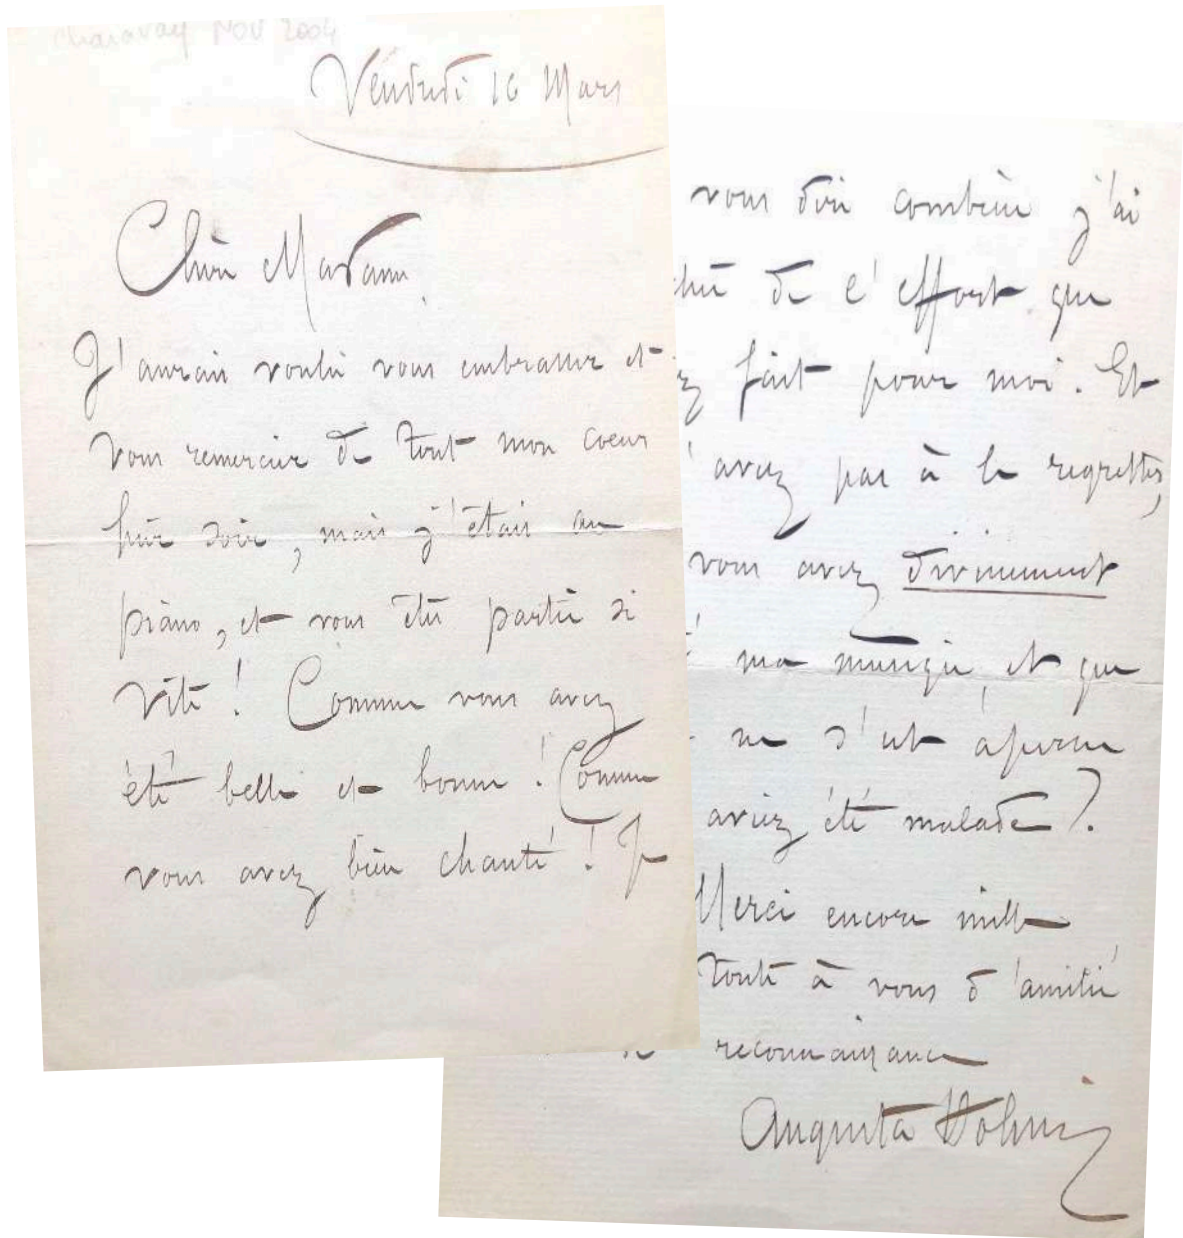 Charavay NOV 2004
Vendredi 16 Mars
Chère Madame,
J'aurais voulu vous embrasser et
vous remercier de tout mon coeur
hier soir, mais j'étais au
piano, et vous êtes partie si
vite ! Comme vous avez
été belle et bonne ! Comme
vous avez bien chanté ! Je
vous dire combien j'ai
de l'effort que
fait pour moi. Et
avez pas à le regretter,
vous avez divinement
ma musique, et que
ne s'est aperçu
aviez été malade ?
Merci encore mille
toute à vous d'amitié
reconnaissance
Augusta Holmès